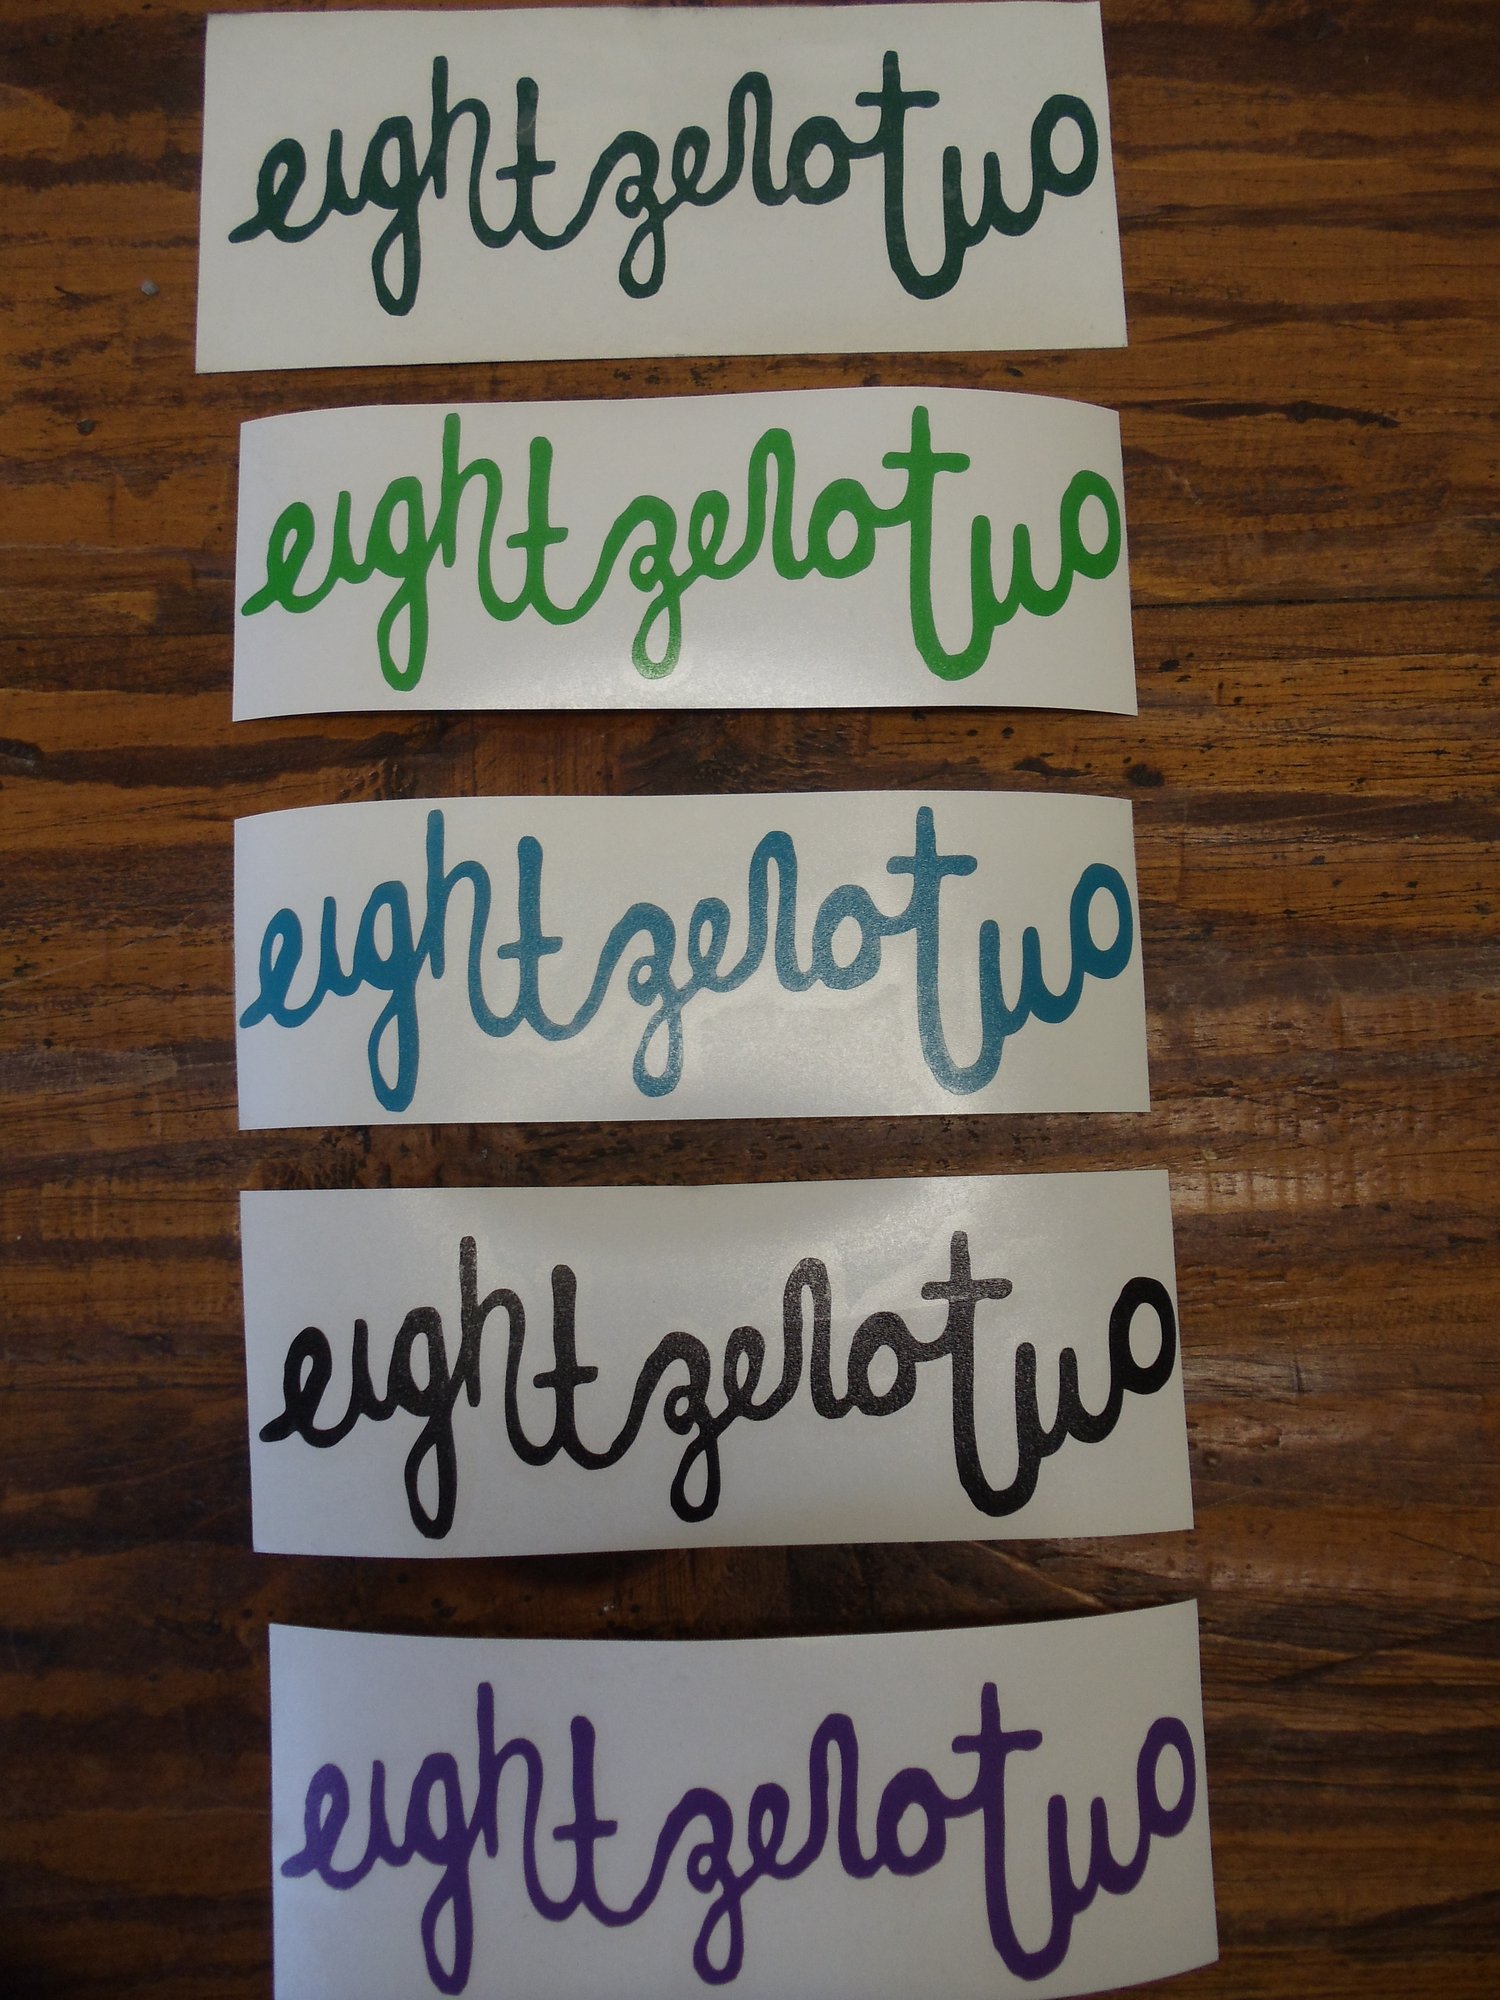 eightzerotwo
eightzerotwo
eightzerotwo
eightzerotwo
eightzerotwo